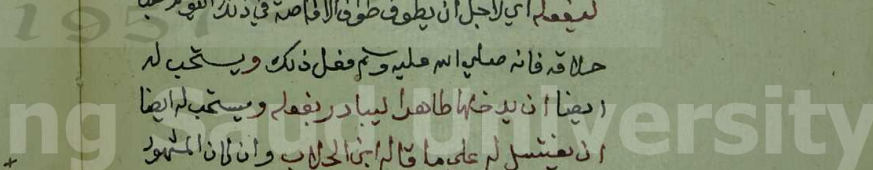 ليفعله اي لاجل ان يطوف طواف الافاضة في ذلك
حلاقه فانه صلي الله عليه وسلم فعل ذلك ويستحب له
ايضا ان يدخلها طاهرا ليبادر بفعله ويستحب له ايضا
ان يغتسل له علي ما قاله ابن الجلاب وان كان المشهور
1957
ng Saud University